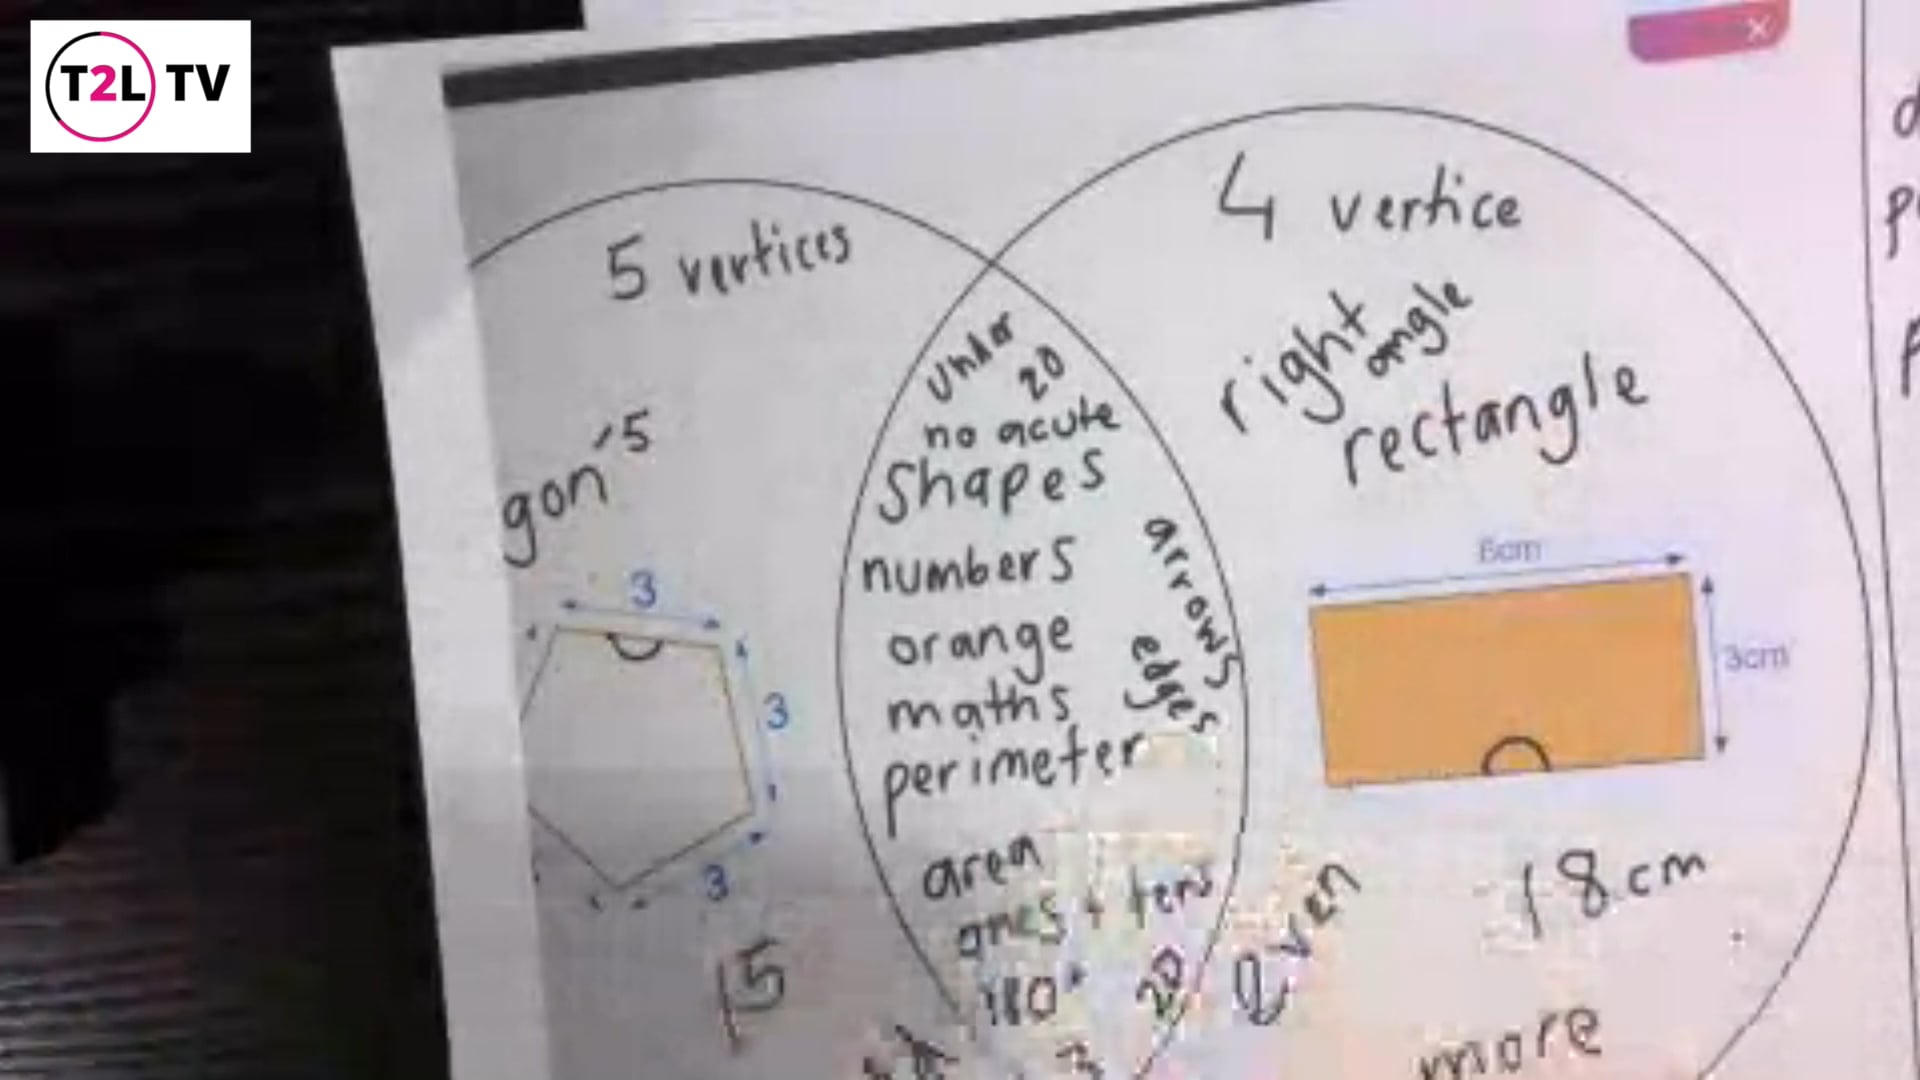 T2L TV
5 vertices
gon-5
3
3
3
15
under
20
no acute
shapes
numbers
orange
maths
perimeter
arrows
edges
area
ones + tens
180°
20
3
4 vertice
right
angle
rectangle
6cm
3cm
18cm
even
more